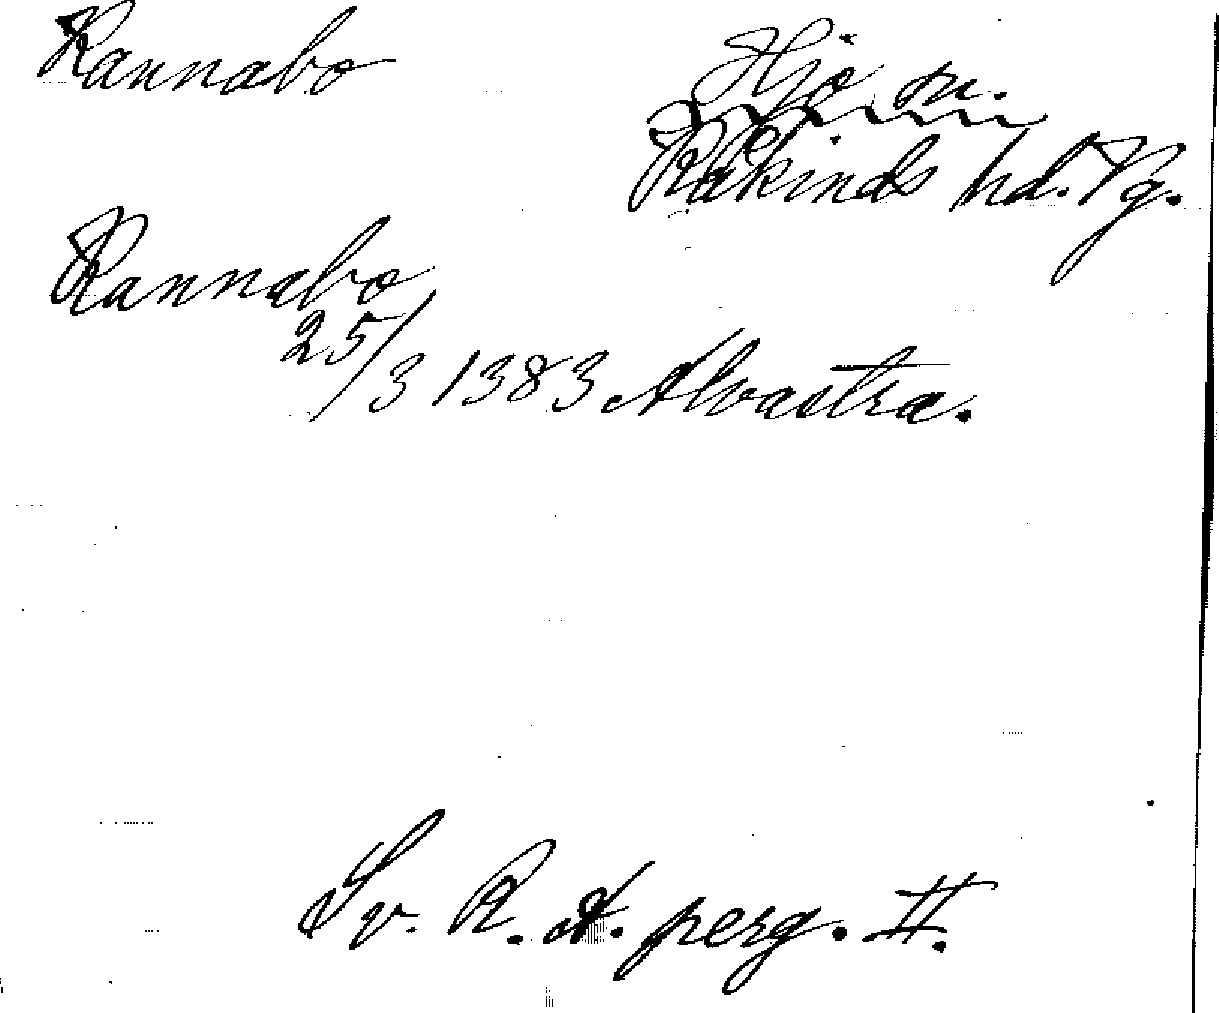 Rannabo
Hjo sn.
Kåkinds hd. Vg.
Rannabo
25/3 1383 Alvastra.
Sv. R. A. perg. II.